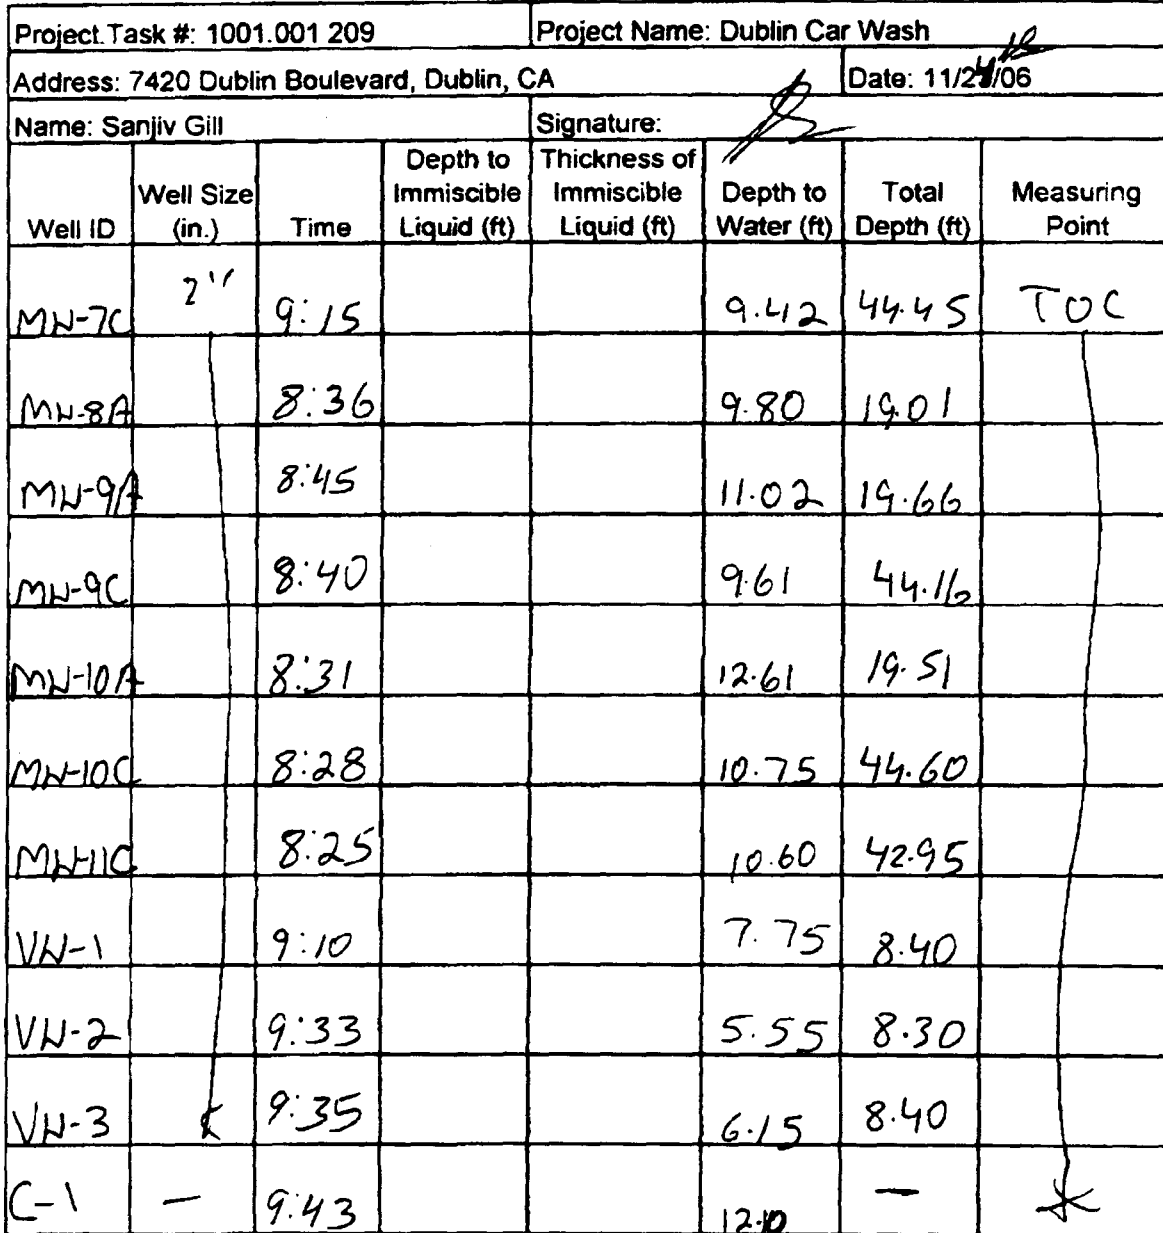 Project.Task #: 1001.001 209 Project Name: Dublin Car Wash
Address: 7420 Dublin Boulevard, Dublin, CA Date: 11/24/06
Name: Sanjiv Gill Signature:
Well ID Well Size (in.) Time Depth to Immiscible Liquid (ft) Thickness of Immiscible Liquid (ft) Depth to Water (ft) Total Depth (ft) Measuring Point
MW-7C 2" 9:15 9.42 44.45 TOC
MW-8A 8:36 9.80 19.01
MW-9A 8:45 11.02 19.66
MW-9C 8:40 9.61 44.16
MW-10A 8:31 12.61 19.51
MW-10C 8:28 10.75 44.60
MW-11C 8:25 10.60 42.95
VW-1 9:10 7.75 8.40
VW-2 9:33 5.55 8.30
VW-3 9:35 6.15 8.40
C-1 – 9:43 12.10 –